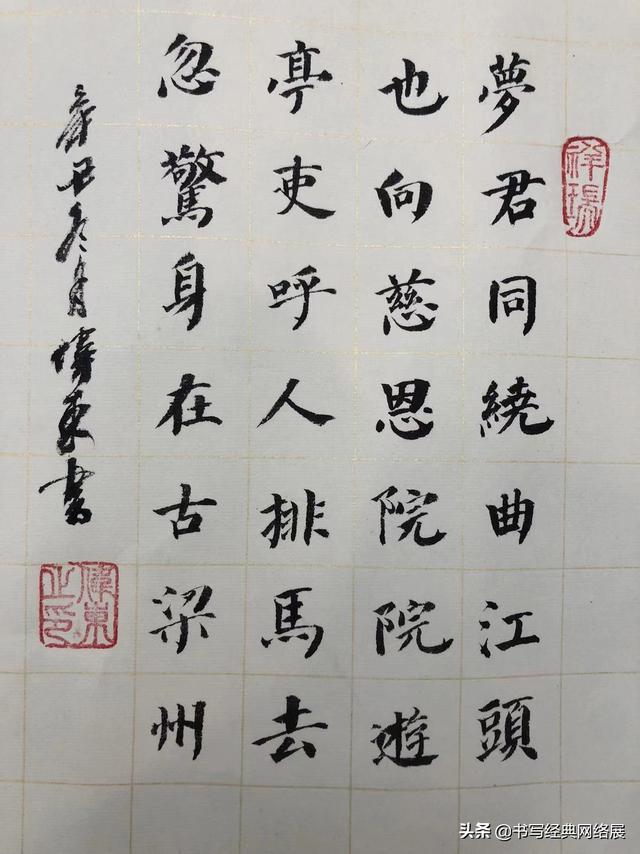 夢君同繞曲江頭
也向慈恩院院遊
亭吏呼人排馬去
忽驚身在古梁州
辛丑冬月偉東書
偉東之印
头条 @书写经典网络展